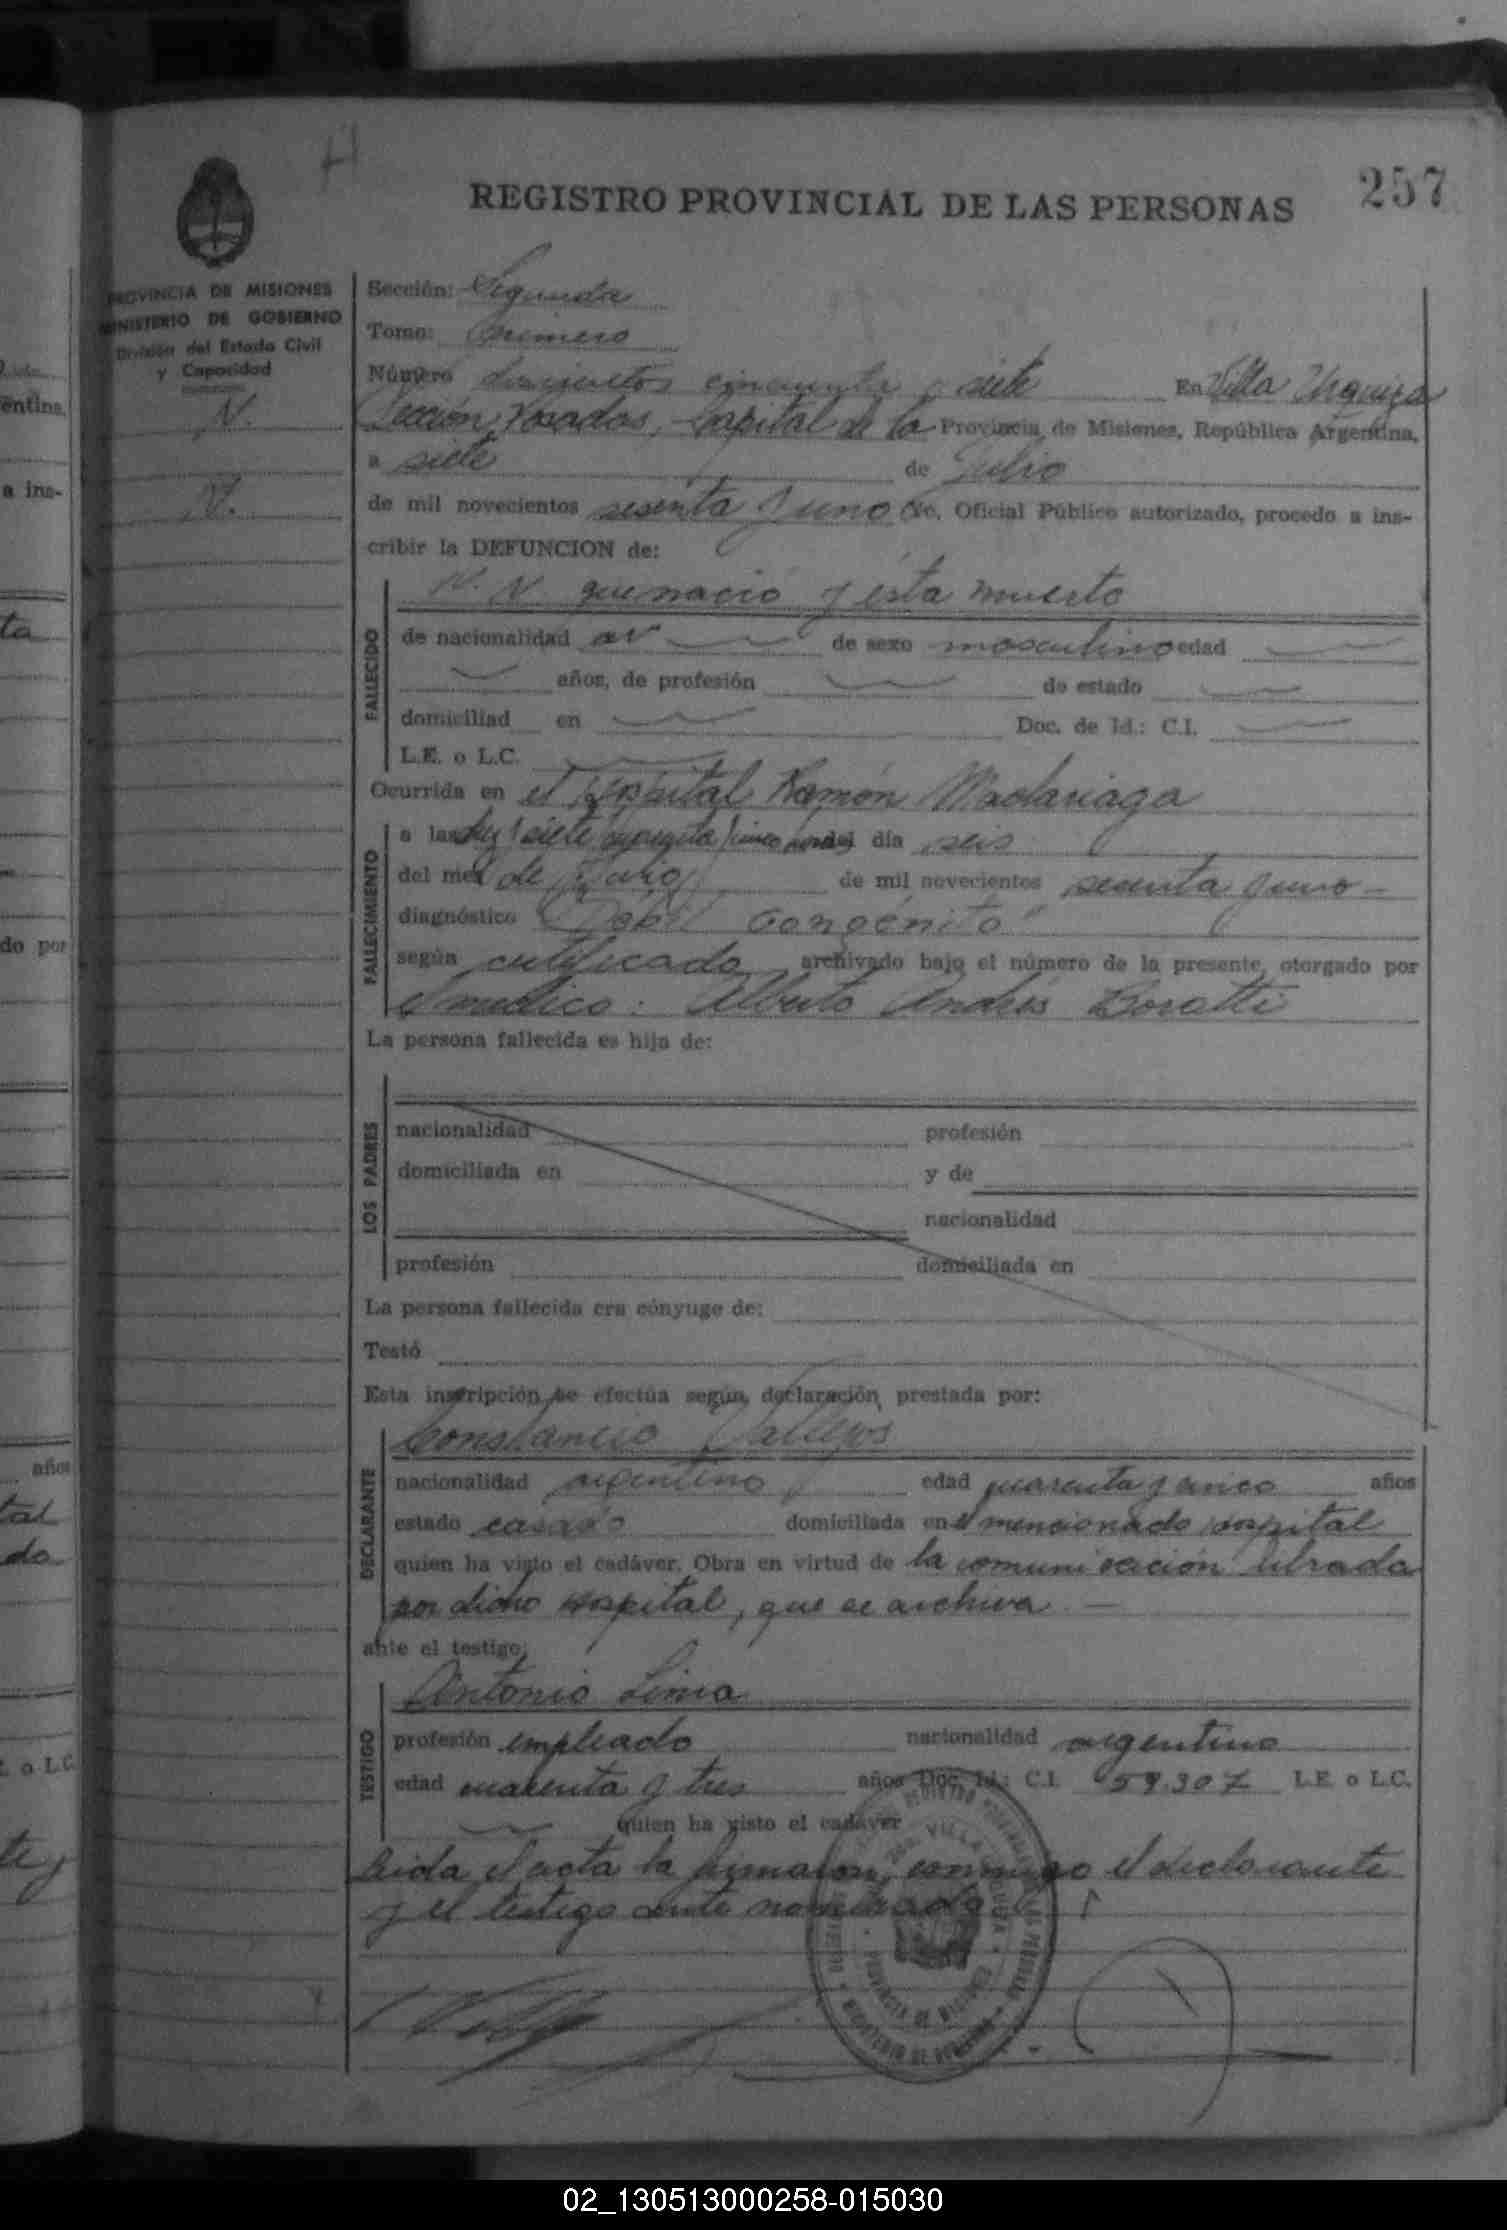 REGISTRO PROVINCIAL DE LAS PERSONAS
257
PROVINCIA DE MISIONES
MINISTERIO DE GOBIERNO
División del Estado Civil
y Capacidad
N.
N.
Sección: Segunda
Tomo: Primero
Número doscientos cincuenta y siete En Villa Urquiza
Sección Posadas, Capital de la Provincia de Misiones, República Argentina,
a siete de Julio
de mil novecientos sesenta y uno Yo, Oficial Público autorizado, procedo a ins-
cribir la DEFUNCION de:
FALLECIDO
N. N. que nació y ésta muerto
de nacionalidad ar de sexo masculino edad
años, de profesión de estado
domiciliad en Doc. de Id.: C.I.
L.E. o L.C.
Ocurrida en el Hospital Ramón Madariaga
FALLECIMIENTO
a las diez y siete cuarenta y cinco horas del día seis
del mes de Julio de mil novecientos sesenta y uno
diagnóstico "Débil Congénito"
según certificado archivado bajo el número de la presente, otorgado por
el medico: Alberto Andrés Boratti
La persona fallecida es hija de:
LOS PADRES
nacionalidad profesión
domiciliada en y de
nacionalidad
profesión domiciliada en
La persona fallecida era cónyuge de:
Testó
Esta inscripción se efectúa según declaración prestada por:
DECLARANTE
Constancio Vallejos
nacionalidad argentino edad cuarenta y cinco años
estado casado domiciliada en el mencionado hospital
quien ha visto el cadáver. Obra en virtud de la comunicación librada
por dicho hospital, que se archiva. —
ante el testigo:
TESTIGO
Antonio Lima
profesión empleado nacionalidad argentino
edad cuarenta y tres años Doc. Id.: C.I. 59.307 L.E o L.C.
quien ha visto el cadáver
Leida el acta la firmaron conmigo el declarante
y el testigo ante nombrado
VILLA URQUIZA
PROVINCIA DE MISIONES
MINISTERIO DE GOBIERNO
entina,
a ins-
ta
do por
años
tal
do
o L.C.
02_130513000258-015030